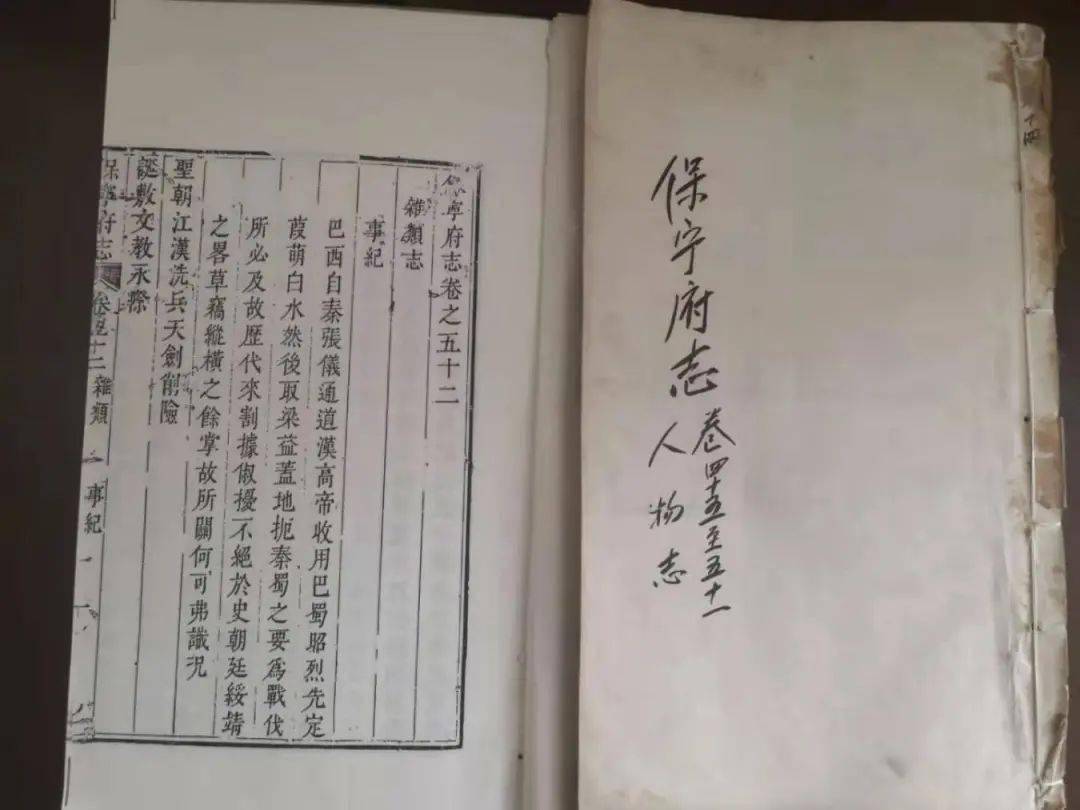 保寧府志卷之五十二
雜類志
事紀
巴西自秦張儀通道漢高帝收用巴蜀昭烈先定
葭萌白水然後取梁益蓋地扼秦蜀之要爲戰伐
所必及故歷代來割據俶擾不絕於史朝廷綏靖
之畧草竊縱橫之餘掌故所關何可弗識况
聖朝江漢洗兵天劍削險
誕敷文教永
保寧府志 卷五十二 雜類 事紀 一
保宁府志
卷四十五至五十一
人物志